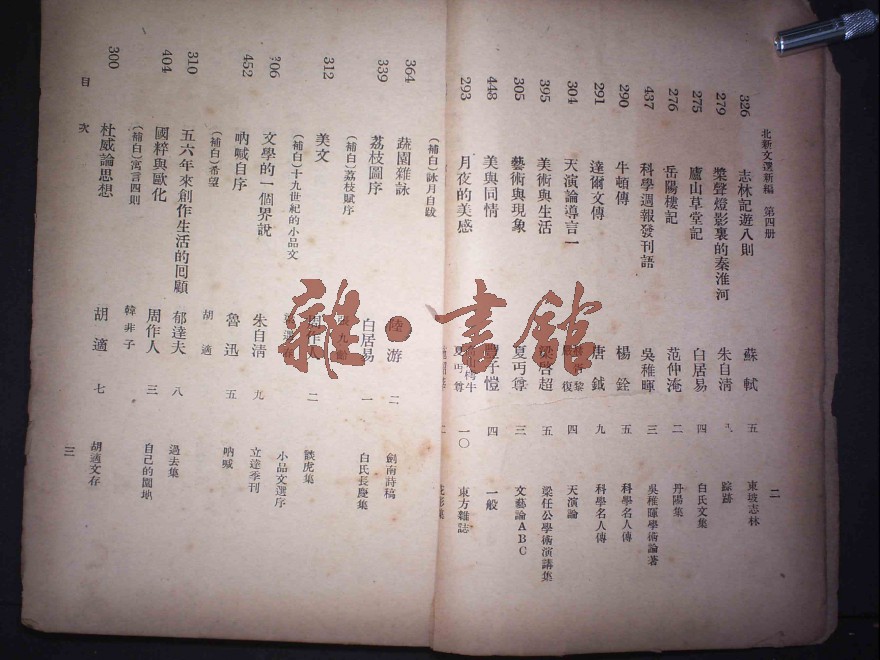 北新文選新編 第四册
二
326 志林記遊八則 蘇軾 五 東坡志林
279 槳聲燈影裏的秦淮河 朱自清 踪跡
275 廬山草堂記 白居易 四 白氏文集
276 岳陽樓記 范仲淹 二 丹陽集
437 科學週報發刊語 吳稚暉 三 吳稚暉學術論著
290 牛頓傳 楊銓 五 科學名人傳
291 達爾文傳 唐鉞 九 科學名人傳
304 天演論導言一 復 四 天演論
395 美術與生活 梁啓超 五 梁任公學術演講集
305 藝術與現象 夏丏尊 三 文藝論ABC
448 美與同情 豐子愷 四 一般
293 月夜的美感 高山樗牛 夏丏尊 一〇 東方雜誌
(補白)詠月自跋
364 蔬園雜詠 陸游 二 劍南詩稿
339 荔枝圖序 白居易 一 白氏長慶集
(補白)荔枝賦序 張九齡
312 美文 周作人 二 談虎集
(補白)十九世紀的小品文 小品文選序
306 文學的一個界說 朱自清 九 立達季刊
452 吶喊自序 魯迅 五 吶喊
(補白)希望 胡適
310 五六年來創作生活的回顧 郁達夫 八 過去集
404 國粹與歐化 周作人 三 自己的園地
(補白)寓言四則 韓非子
300 杜威論思想 胡適 七 胡適文存
目次
三
雜·書館